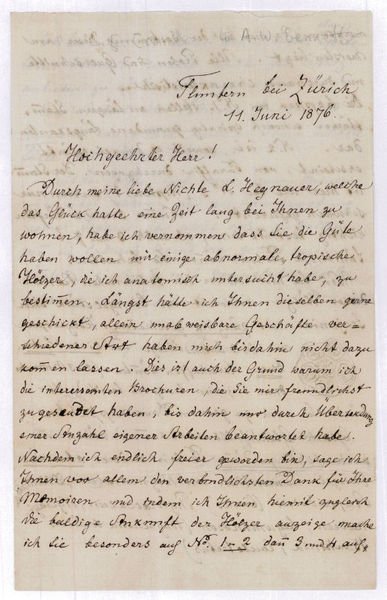 Fluntern bei Zürich
11. Juni 1876.
Hochgeehrter Herr!
Durch meine liebe Nichte L. Hegnauer, welche
das Glück hatte eine Zeit lang bei Ihnen zu
wohnen, habe ich vernommen dass Sie die Güte
haben wollen mir einige abnormale, tropische
Hölzer, die ich anatomisch untersucht habe, zu
bestim̅en. Längst hätte ich Ihnen dieselben gerne
geschickt, allein unabweisbare Geschäfte ver=
schiedener Art haben mich bis dahin nicht dazu
kom̅en lassen. Dies ist auch der Grund warum ich
die interessanten Brochuren, die Sie mir freundlichst
zugesendet haben, bis dahin nur durch Übersendung
einer Anzahl eigener Arbeiten beantwortet habe.
Nachdem ich endlich freier geworden bin, sage ich
Ihnen vor allem den verbindlichsten Dank für Ihre
Memoiren und indem ich Ihnen hiemit zugleich
die baldige Ankunft der Hölzer anzeige mache
ich Sie besonders auf No. 1–2 dan̅ 3 und 4 auf=